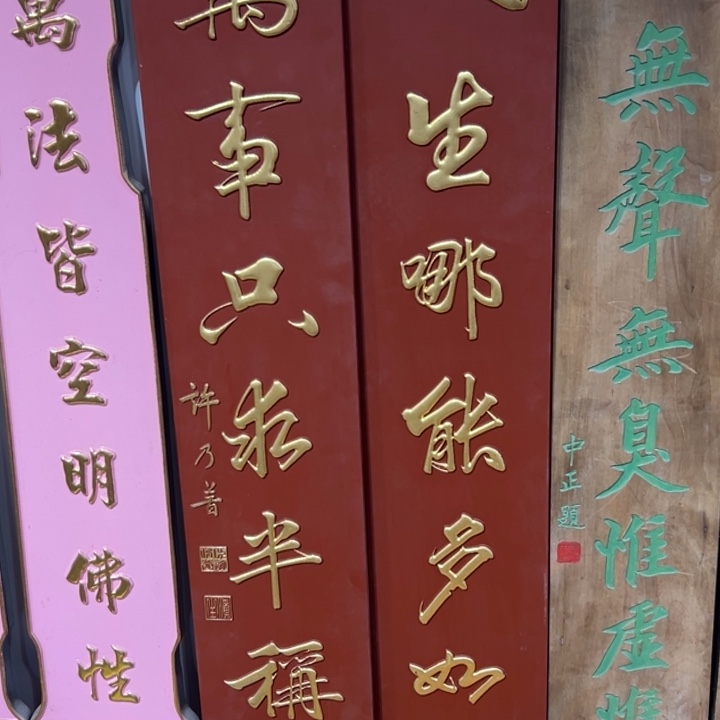 無聲無臭惟虛惟
中正題
生哪能多如
萬事只求半稱
許乃普
萬法皆空明佛性